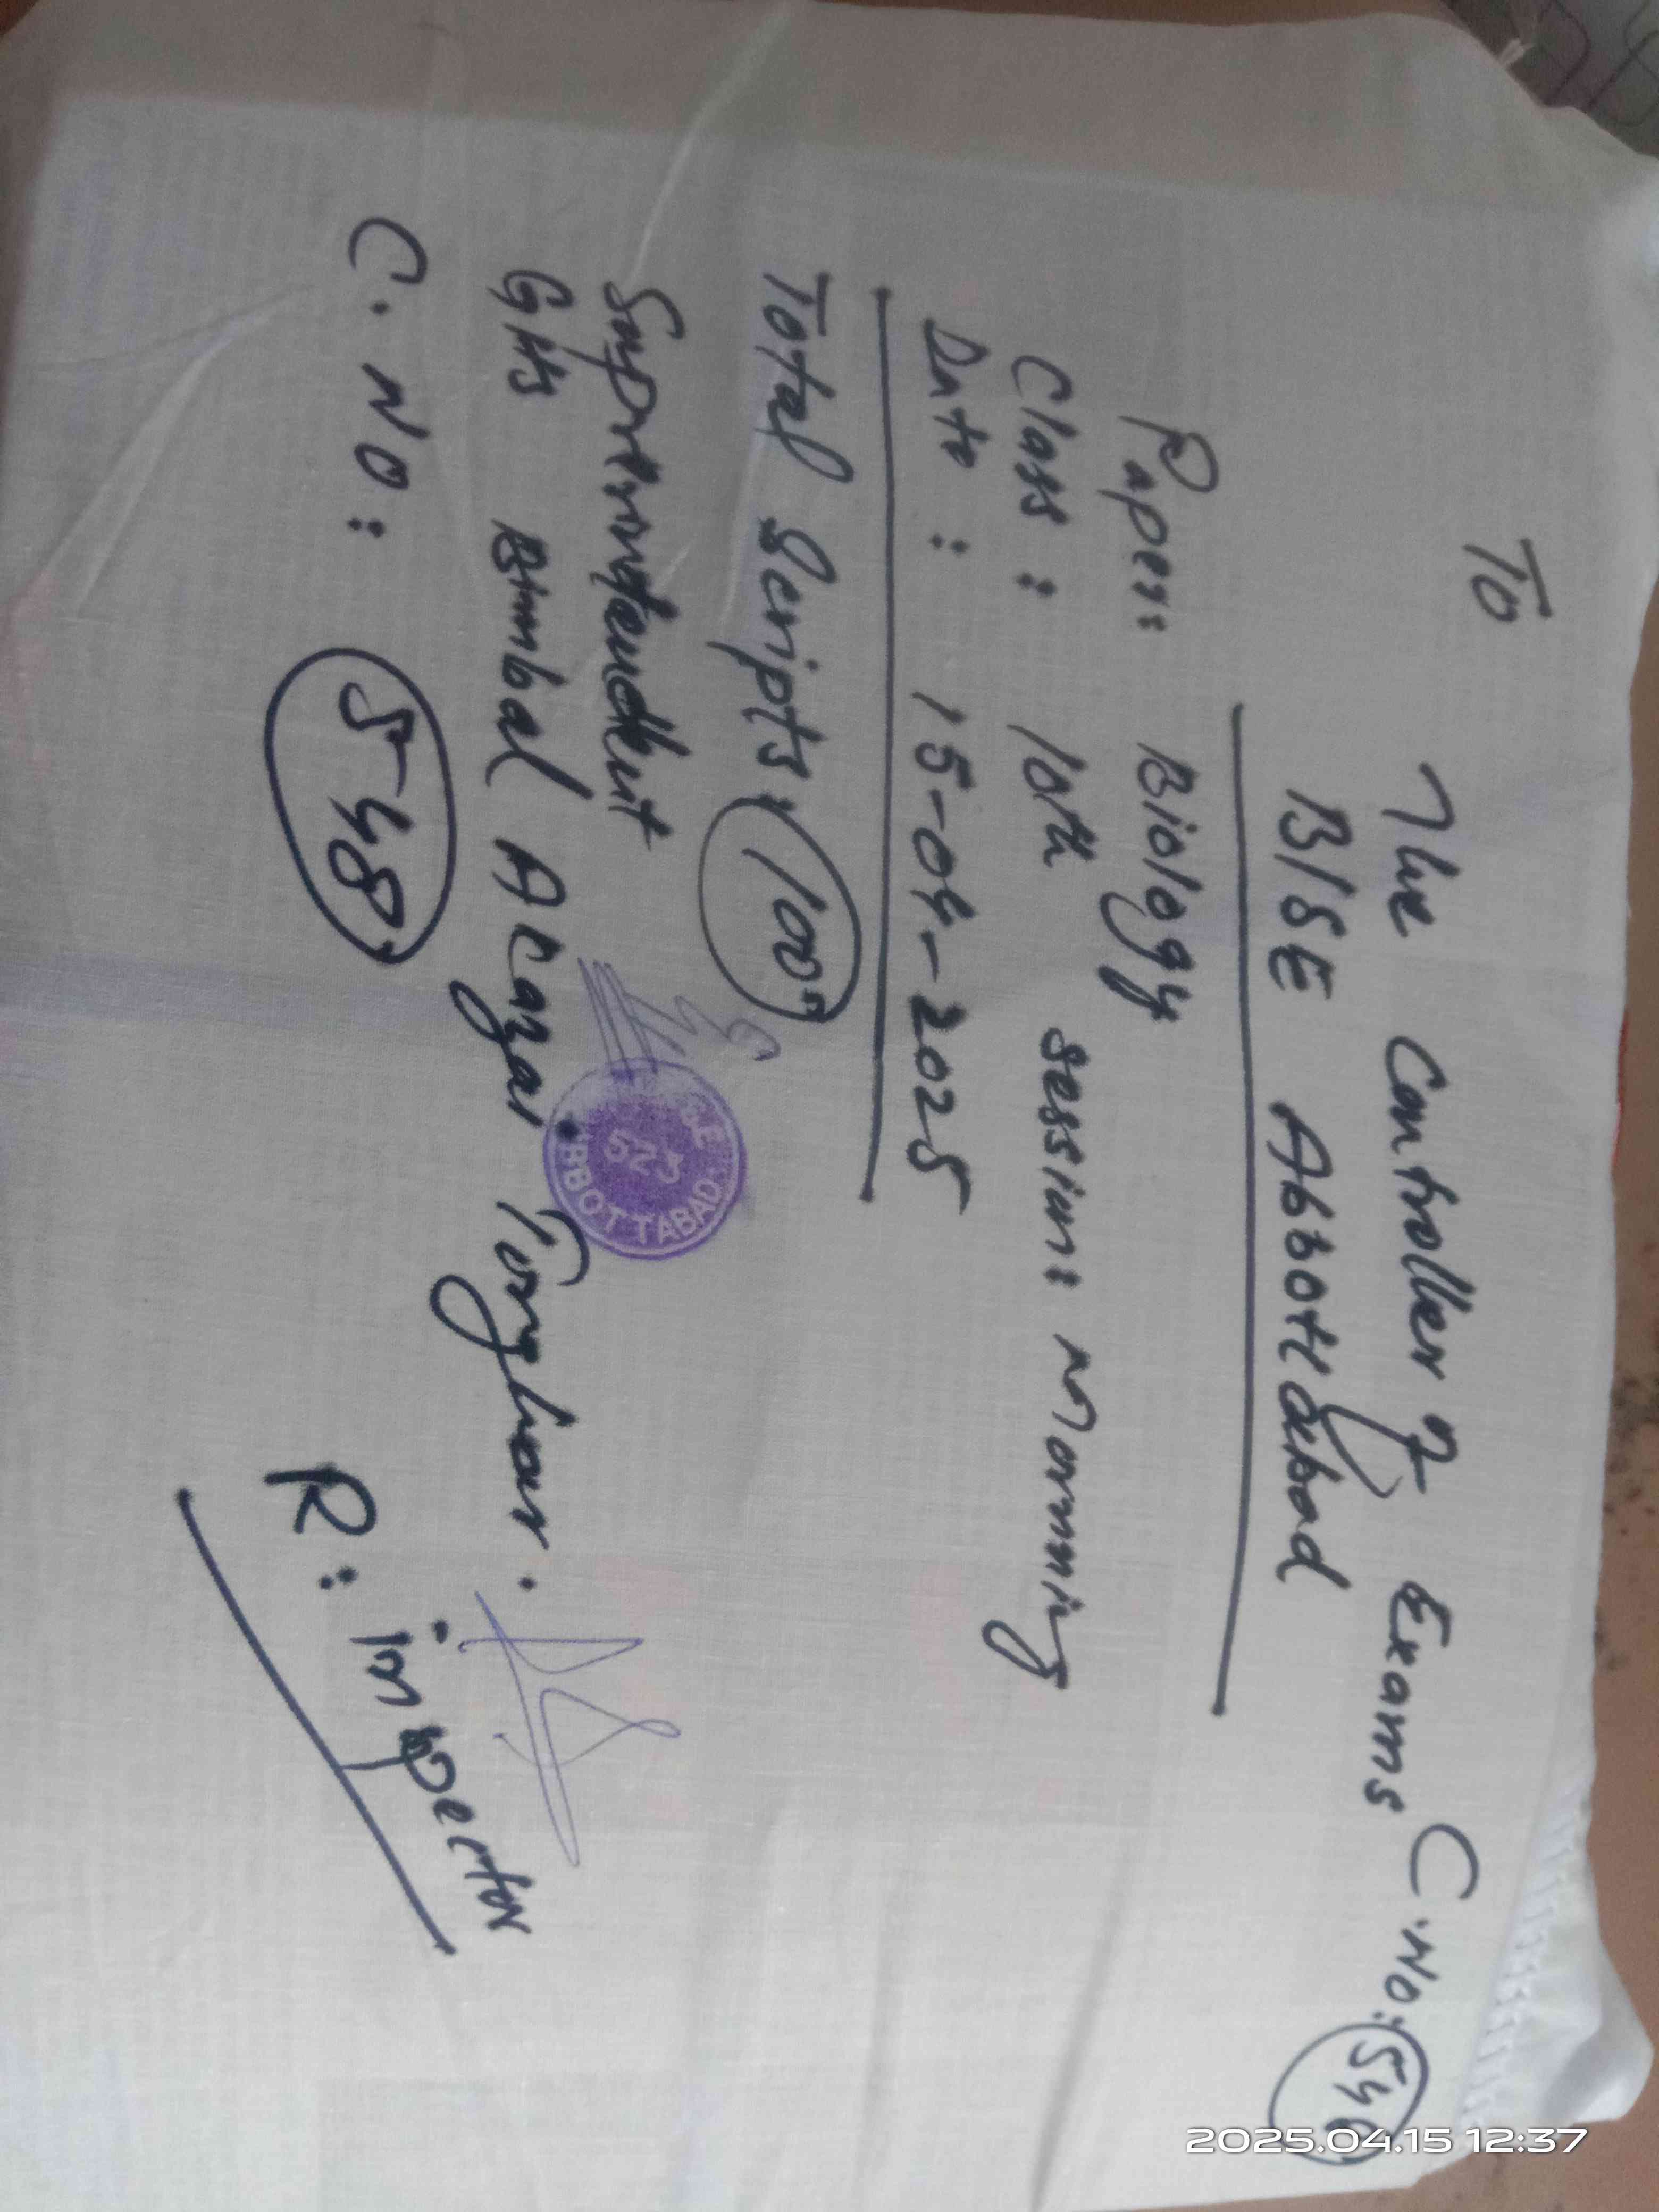 To
The Controller of Exams C.No: 548
BISE Abbottabad
Paper: Biology
Class: 10th Session: Morning
Date: 15-04-2025
Total Scripts: 100
Superintendent
GHS Bimbal Akazai Torghar.
C.NO: 548
R: inspector
523
ABBOTTABAD
2025.04.15 12:37